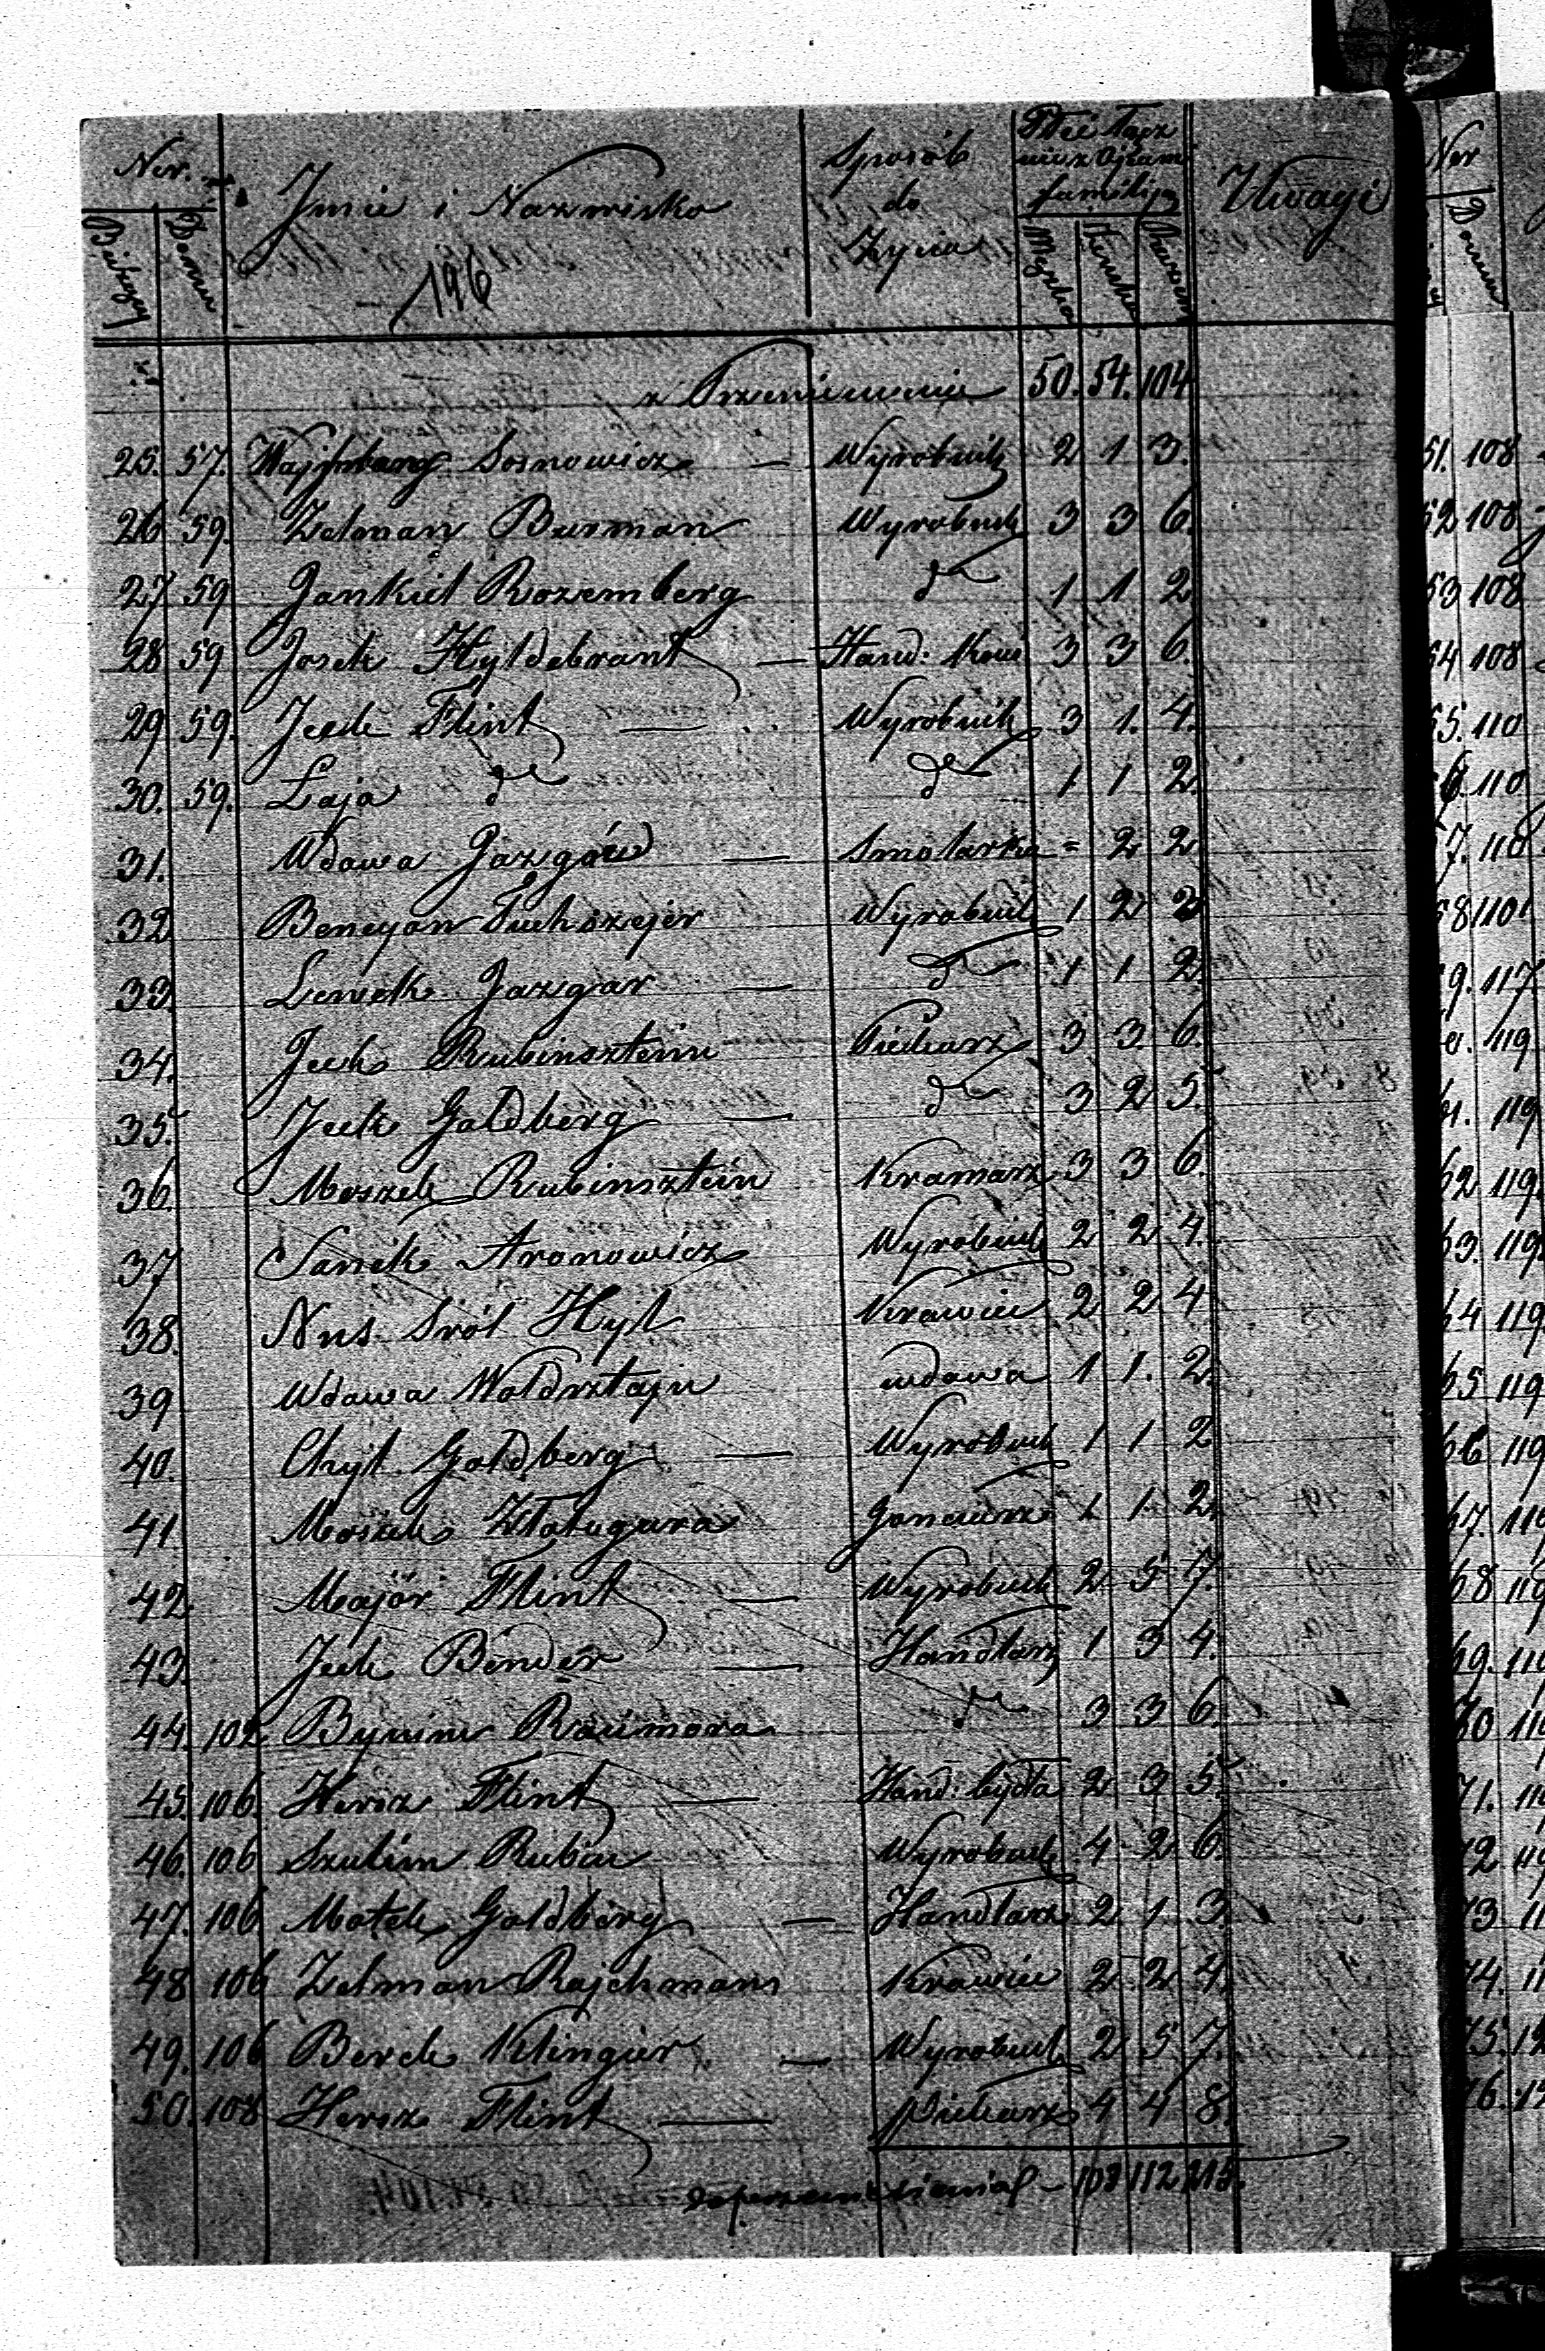 Ner.
Bieżący
Domu
Imie i Nazwisko
196
Sposób do Życia
Płeć łącznie z Ojcami familij
Męzka
Żeńska
Razem
Uwagi
z Przeniesienia 50. 54. 104
25. 57. Sosnowicz — Wyrobnik 2 1 3.
26 59. Zelman Burman Wyrobnik 3 3 6.
27 59 Jankiel Rozemberg dto 1 1 2
28 59 Josek Hyldebrant — Hand: Koni 3 3 6.
29 59. Icek Flint — Wyrobnik 3 1. 4.
30. 59. Łaja dto dto 1 1 2.
31. Wdowa — Smolarka = 2 2
32 Bencyan Wyrobnik 1 2 3
33. Lewek Jazgar — dto 1 1 2.
34. Icek Rubinsztein Piekarz 3 3 6.
35. Icek Goldberg — dto 3 2 5.
36. Moszek Rubinsztein Kramarz 3 3 6.
37 Aronowicz Wyrobnik 2 2 4.
38. Nus Sról Hyl Krawiec 2 2 4
39 Wdowa Woldsztajn wdowa 1 1. 2.
40. Chyl Goldberg — Wyrobnik 1 1 2
41. Mosiek Złotogura Gonciarz 1 1 2.
42. Major Flint — Wyrobnik 2 5 7.
43. Icek Binder — Handlarz 1 3 4.
44. 102 dto 3 3 6.
45. 106. Hersz Flint — Hand: bydła 2 3 5.
46. 106 Szulim Rubin Wyrobnik 4 2 6.
47. 106 Motek Goldberg — Handlarz 2 1 3.
48 106 Zelman Rajchman Krawiec 2 2 4.
49. 106 Berek Klingier — Wyrobnik 2 5 7.
50. 108 Hersz Flint — Piekarz 4 4 8.
do przeniesienia — 103 112 215.
Ner
Domu
51. 108
52 108
53 108
54 108
55. 110
110
57. 110
58 110
59. 117
119
61. 119
62 119.
63. 119.
64 119.
65 119
66 119
67. 119
68 119
69. 119
70 119
71.
72
73
74.
75.
76.